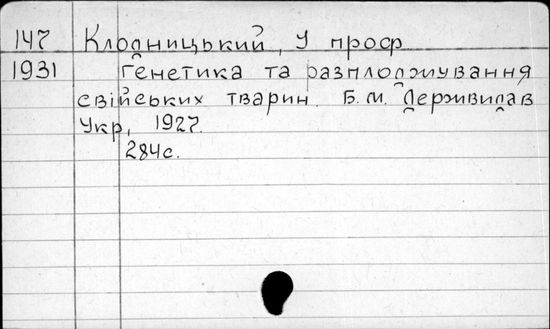 147 Клодницький, У проф
1931 Генетика та размложування
свійських тварин. Б.М. Державидав
Укр, 1927.
284с.